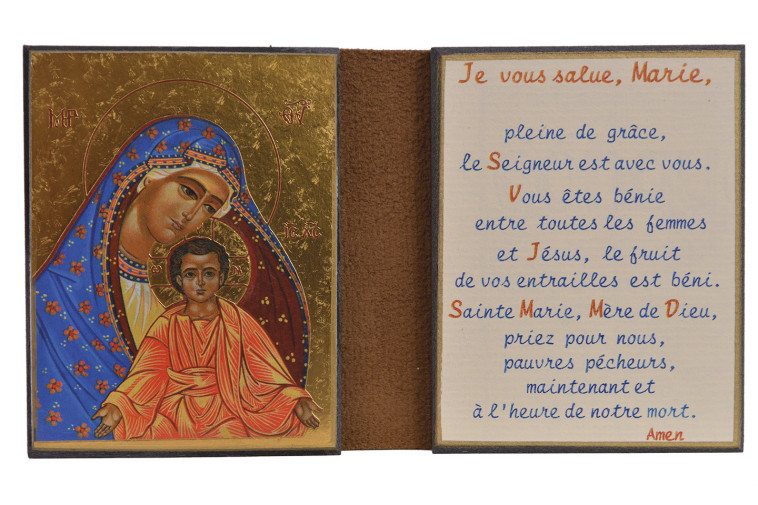 Je vous salue, Marie,
pleine de grâce,
le Seigneur est avec vous.
Vous êtes bénie
entre toutes les femmes
et Jésus, le fruit
de vos entrailles est béni.
Sainte Marie, Mère de Dieu,
priez pour nous,
pauvres pécheurs,
maintenant et
à l'heure de notre mort.
Amen